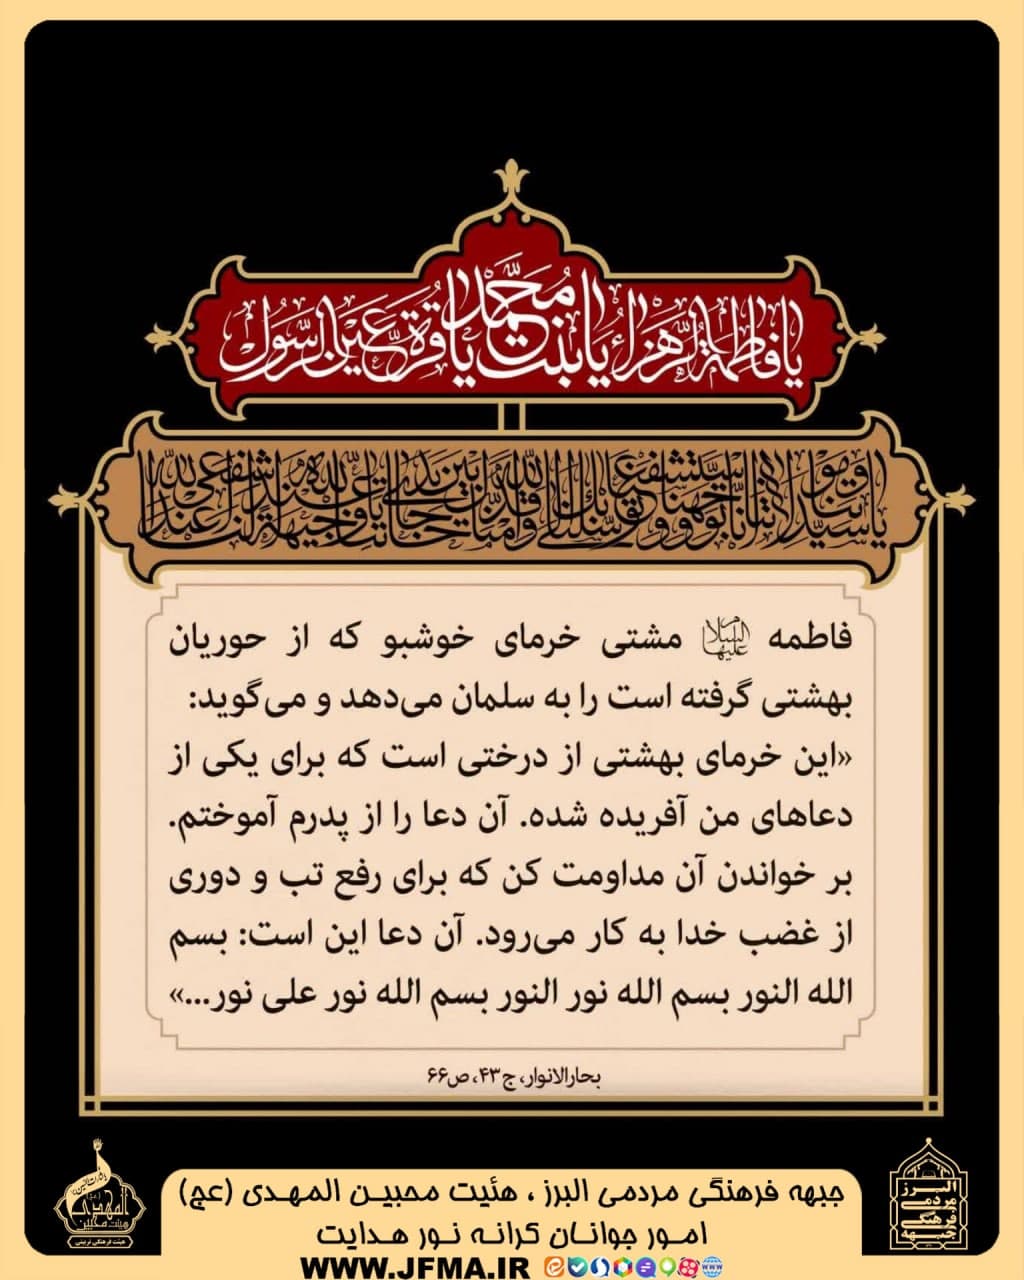 یا فاطمة الزهراء یا بنت محمد یا قرة عین الرسول
یا سیدتنا ومولاتنا انا توجهنا واستشفعنا وتوسلنا بک الی الله وقدمناک بین یدی حاجاتنا یا وجیهة عند الله اشفعی لنا عند الله
فاطمه علیها السلام مشتی خرمای خوشبو که از حوریان
بهشتی گرفته است را به سلمان می‌دهد و می‌گوید:
«این خرمای بهشتی از درختی است که برای یکی از
دعاهای من آفریده شده. آن دعا را از پدرم آموختم.
بر خواندن آن مداومت کن که برای رفع تب و دوری
از غضب خدا به کار می‌رود. آن دعا این است: بسم
الله النور بسم الله نور النور بسم الله نور علی نور...»
بحارالانوار، ج۴۳، ص۶۶
جبهه فرهنگی مردمی البرز ، هئیت محبین المهدی (عج)
امور جوانان کرانه نور هدایت
WWW.JFMA.IR
المهدی
هیئت محبین
هیئت فرهنگی تربیتی
البرز
مردمی
فرهنگی
جبهه